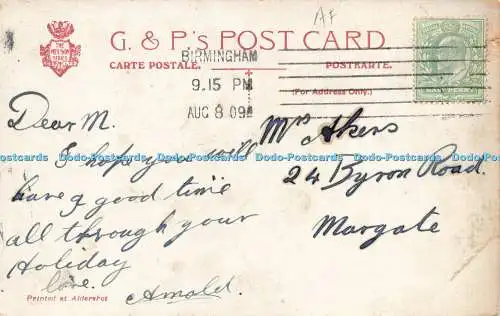 AF
THE
NELSON
SERIES
G. & P's POST CARD
CARTE POSTALE.
POSTKARTE.
(For Address Only.)
BIRMINGHAM
9.15 PM
AUG 8 09
Dear M.
I hope you will
have a good time
all through your
Holiday
love.
Arnold.
Mrs Akers
24 Byron Road.
Margate
Printed at Aldershot
Dodo-Postcards Dodo-Postcards Dodo-Postcards Dodo-Postcards Dodo-Postcards Dodo-Postcards